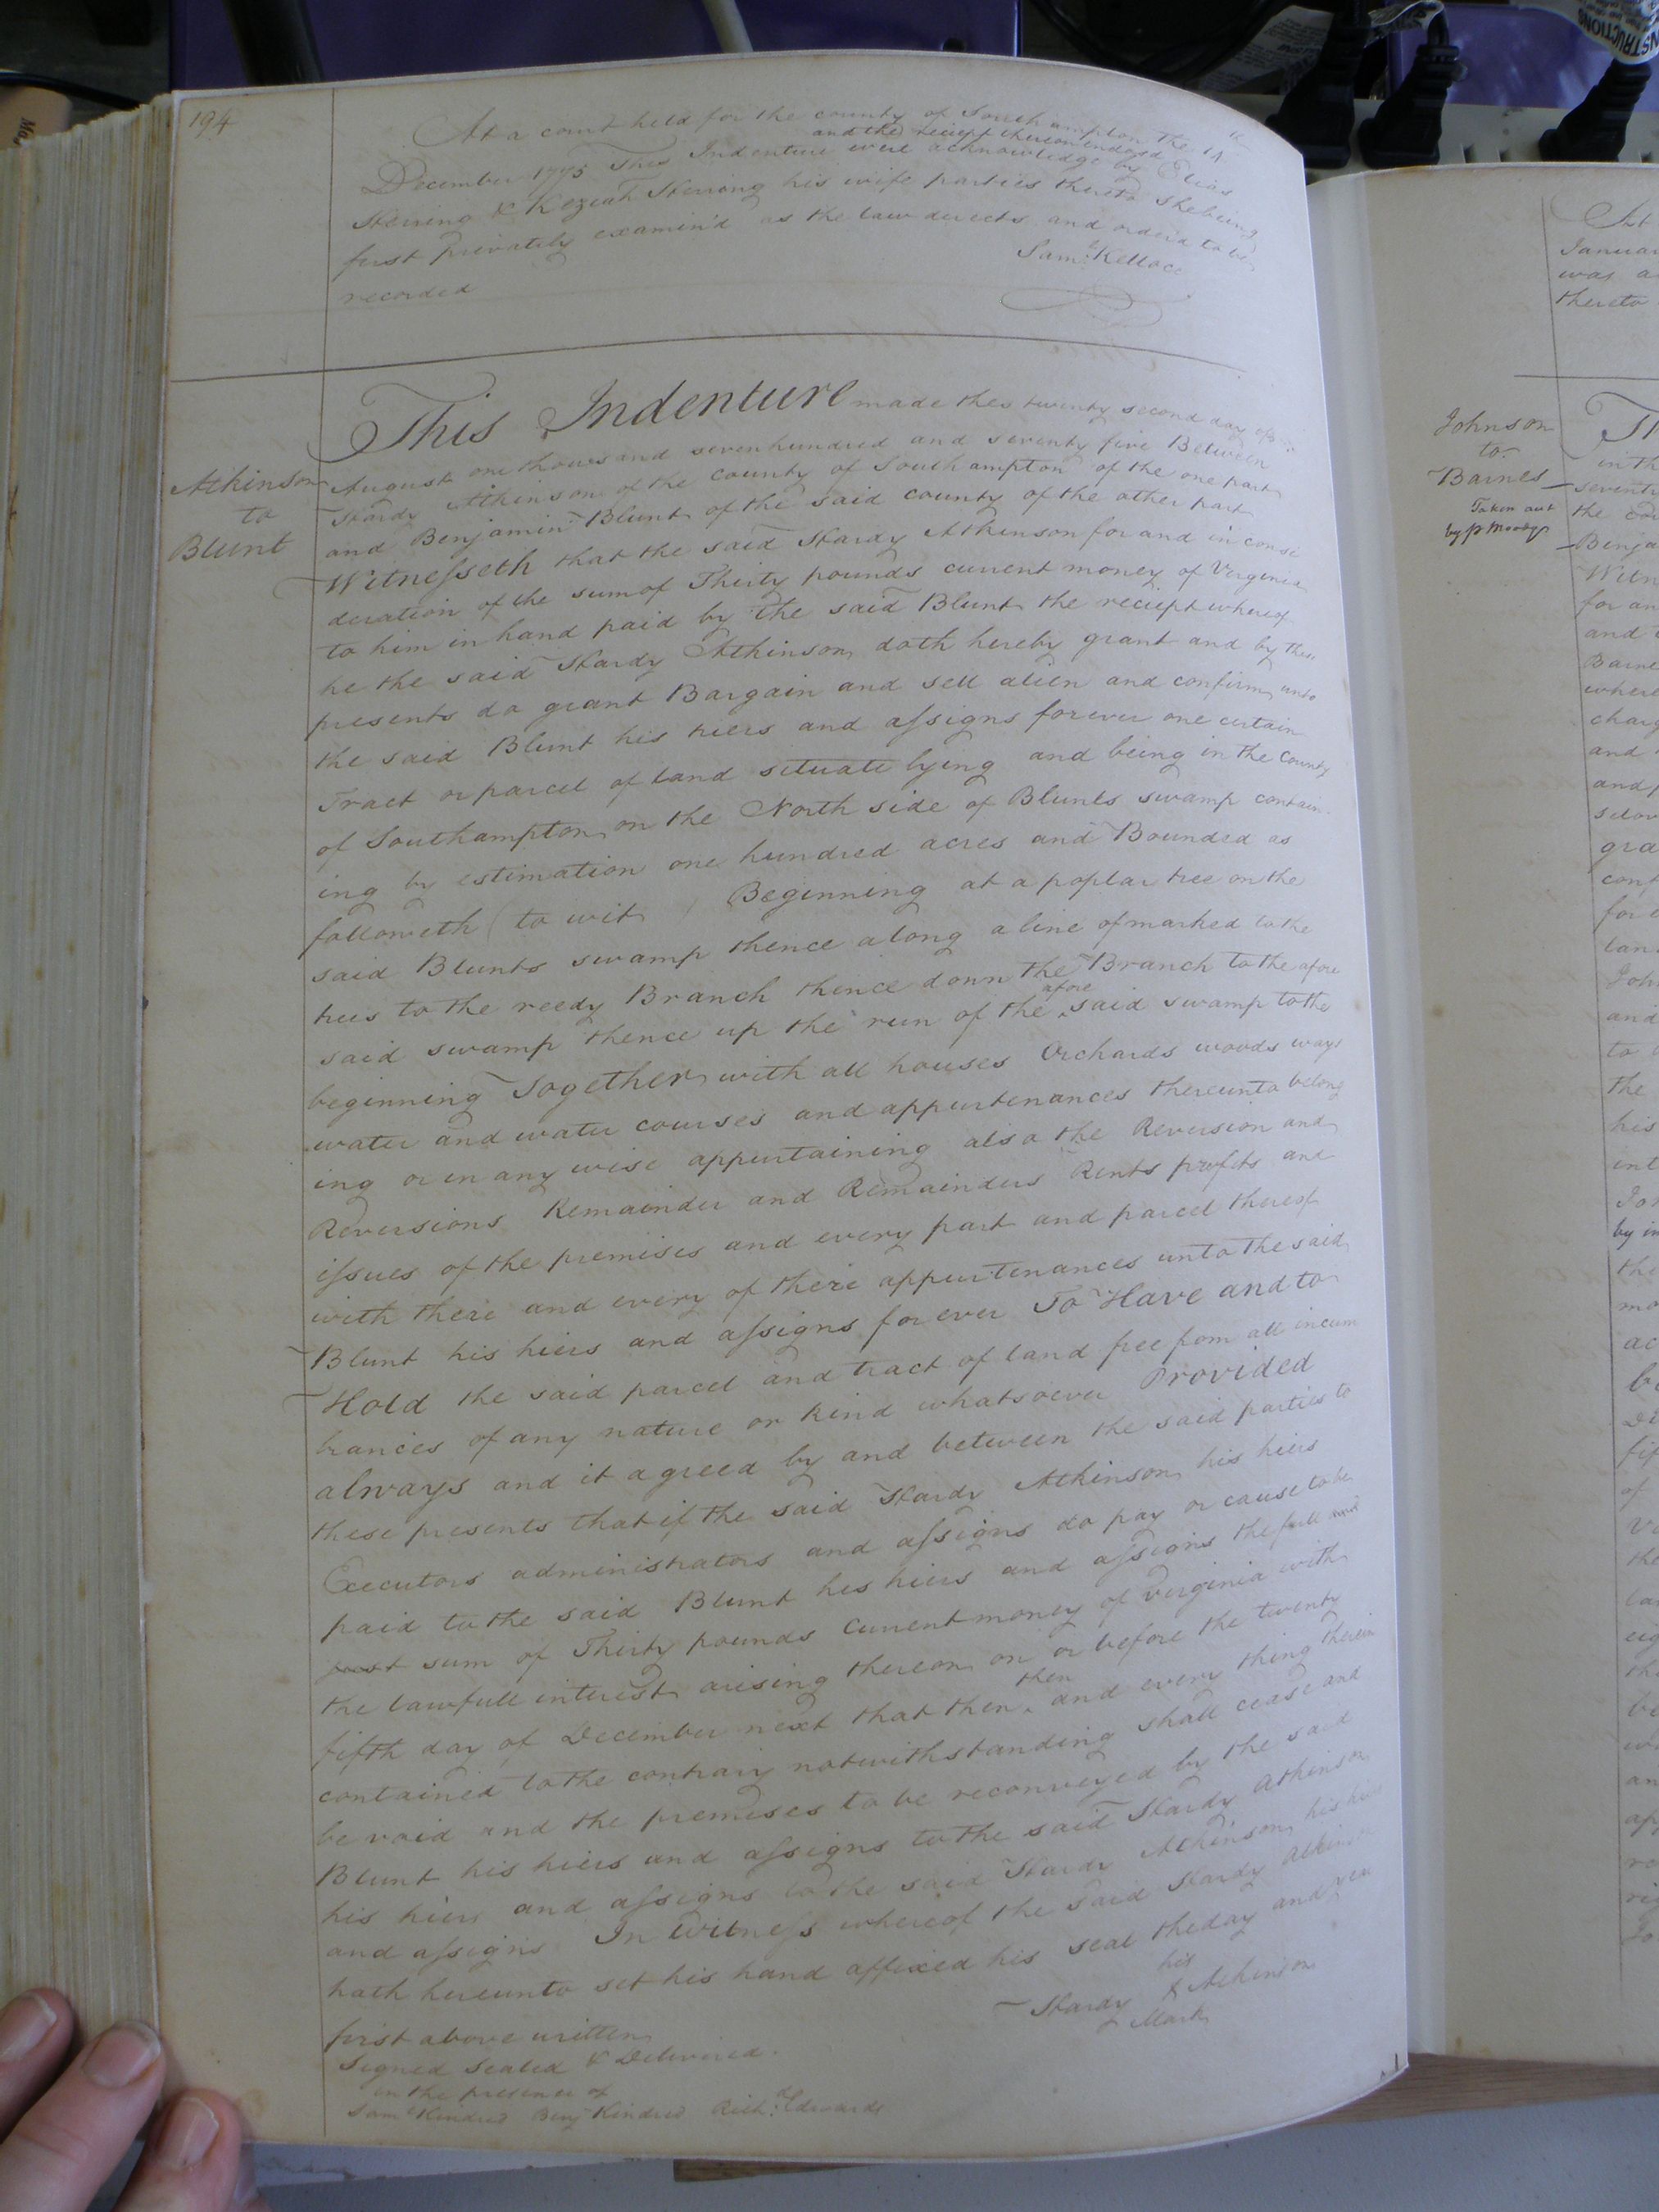 194
At a court held for the county of Southampton the 14th
and the reciept thereon endorsd
December 1775 This Indenture were acknowledge by Elias
Herring & Keziah Herring his wife parties thereto she being
first privately examin'd as the law directs and orderd to be
recorded
Saml. Kello cc
Atkinson
to
Blunt
This Indenture made this twenty second day of
August one thousand seven hundred and seventy five Between
Hardy Atkinson of the county of Southampton of the one part
and Benjamin Blunt of the said county of the other part
Witnesseth that the said Hardy Atkinson for and in consi
deration of the sum of Thirty pounds current money of Virginia
to him in hand paid by the said Blunt the reciept whereof
he the said Hardy Atkinson doth hereby grant and by these
presents do grant Bargain and sell alien and confirm unto
the said Blunt his hiers and assigns forever one certain
Tract or parcel of land situate lying and being in the County
of Southampton on the North side of Blunts swamp contain
ing by estimation one hundred acres and Bounded as
followeth (to wit) Beginning at a poplar tree on the
said Blunts swamp thence along a line of marked to the
trees to the reedy Branch thence down the Branch to the afore
said swamp thence up the run of the afore said swamp to the
beginning Together with all houses Orchards woods ways
water and water courses and appurtenances thereunto belong
ing or in any wise appurtaining also the Reversion and
Reversions Remainder and Remainders Rents profits and
issues of the premises and every part and parcel thereof
with there and every of there appurtenances unto the said
Blunt his hiers and assigns for ever To Have and to
Hold the said parcel and tract of land free from all incum
brances of any nature or kind whatsoever Provided
always and it agreed by and between the said parties to
these presents that if the said Hardy Atkinson his hiers
Executors administrators and assigns do pay or cause to be
paid to the said Blunt his hiers and assigns the full and
just sum of Thirty pounds current money of virginia with
the lawfull interest arising thereon on or before the twenty
fifth day of December next that then then and every thing therein
contained to the contrary notwithstanding shall cease and
be void and the premises to be reconveyed by the said
Blunt his hiers and assigns to the said Hardy Atkinson
his hiers and assigns to the said Hardy Atkinson his hiers
and assigns In Witness whereof the said Hardy Atkinson
hath hereunto set his hand affixed his seal the day and year
first above written
his
Hardy X Atkinson
Mark
Signed Sealed & Delivered
in the presence of
Saml Kindred Benj Kindred Richd. Edwards
Johnson
to
Barnes
Taken out
by
At
Januar
was a
thereto
in th
seventy
the cou
Benja
Witn
for an
and
Barne
where
charg
and
and p
selov
gra
conf
for e
lan
Joh
and
to
the
his
int
Joh
by in
the
mo
ac